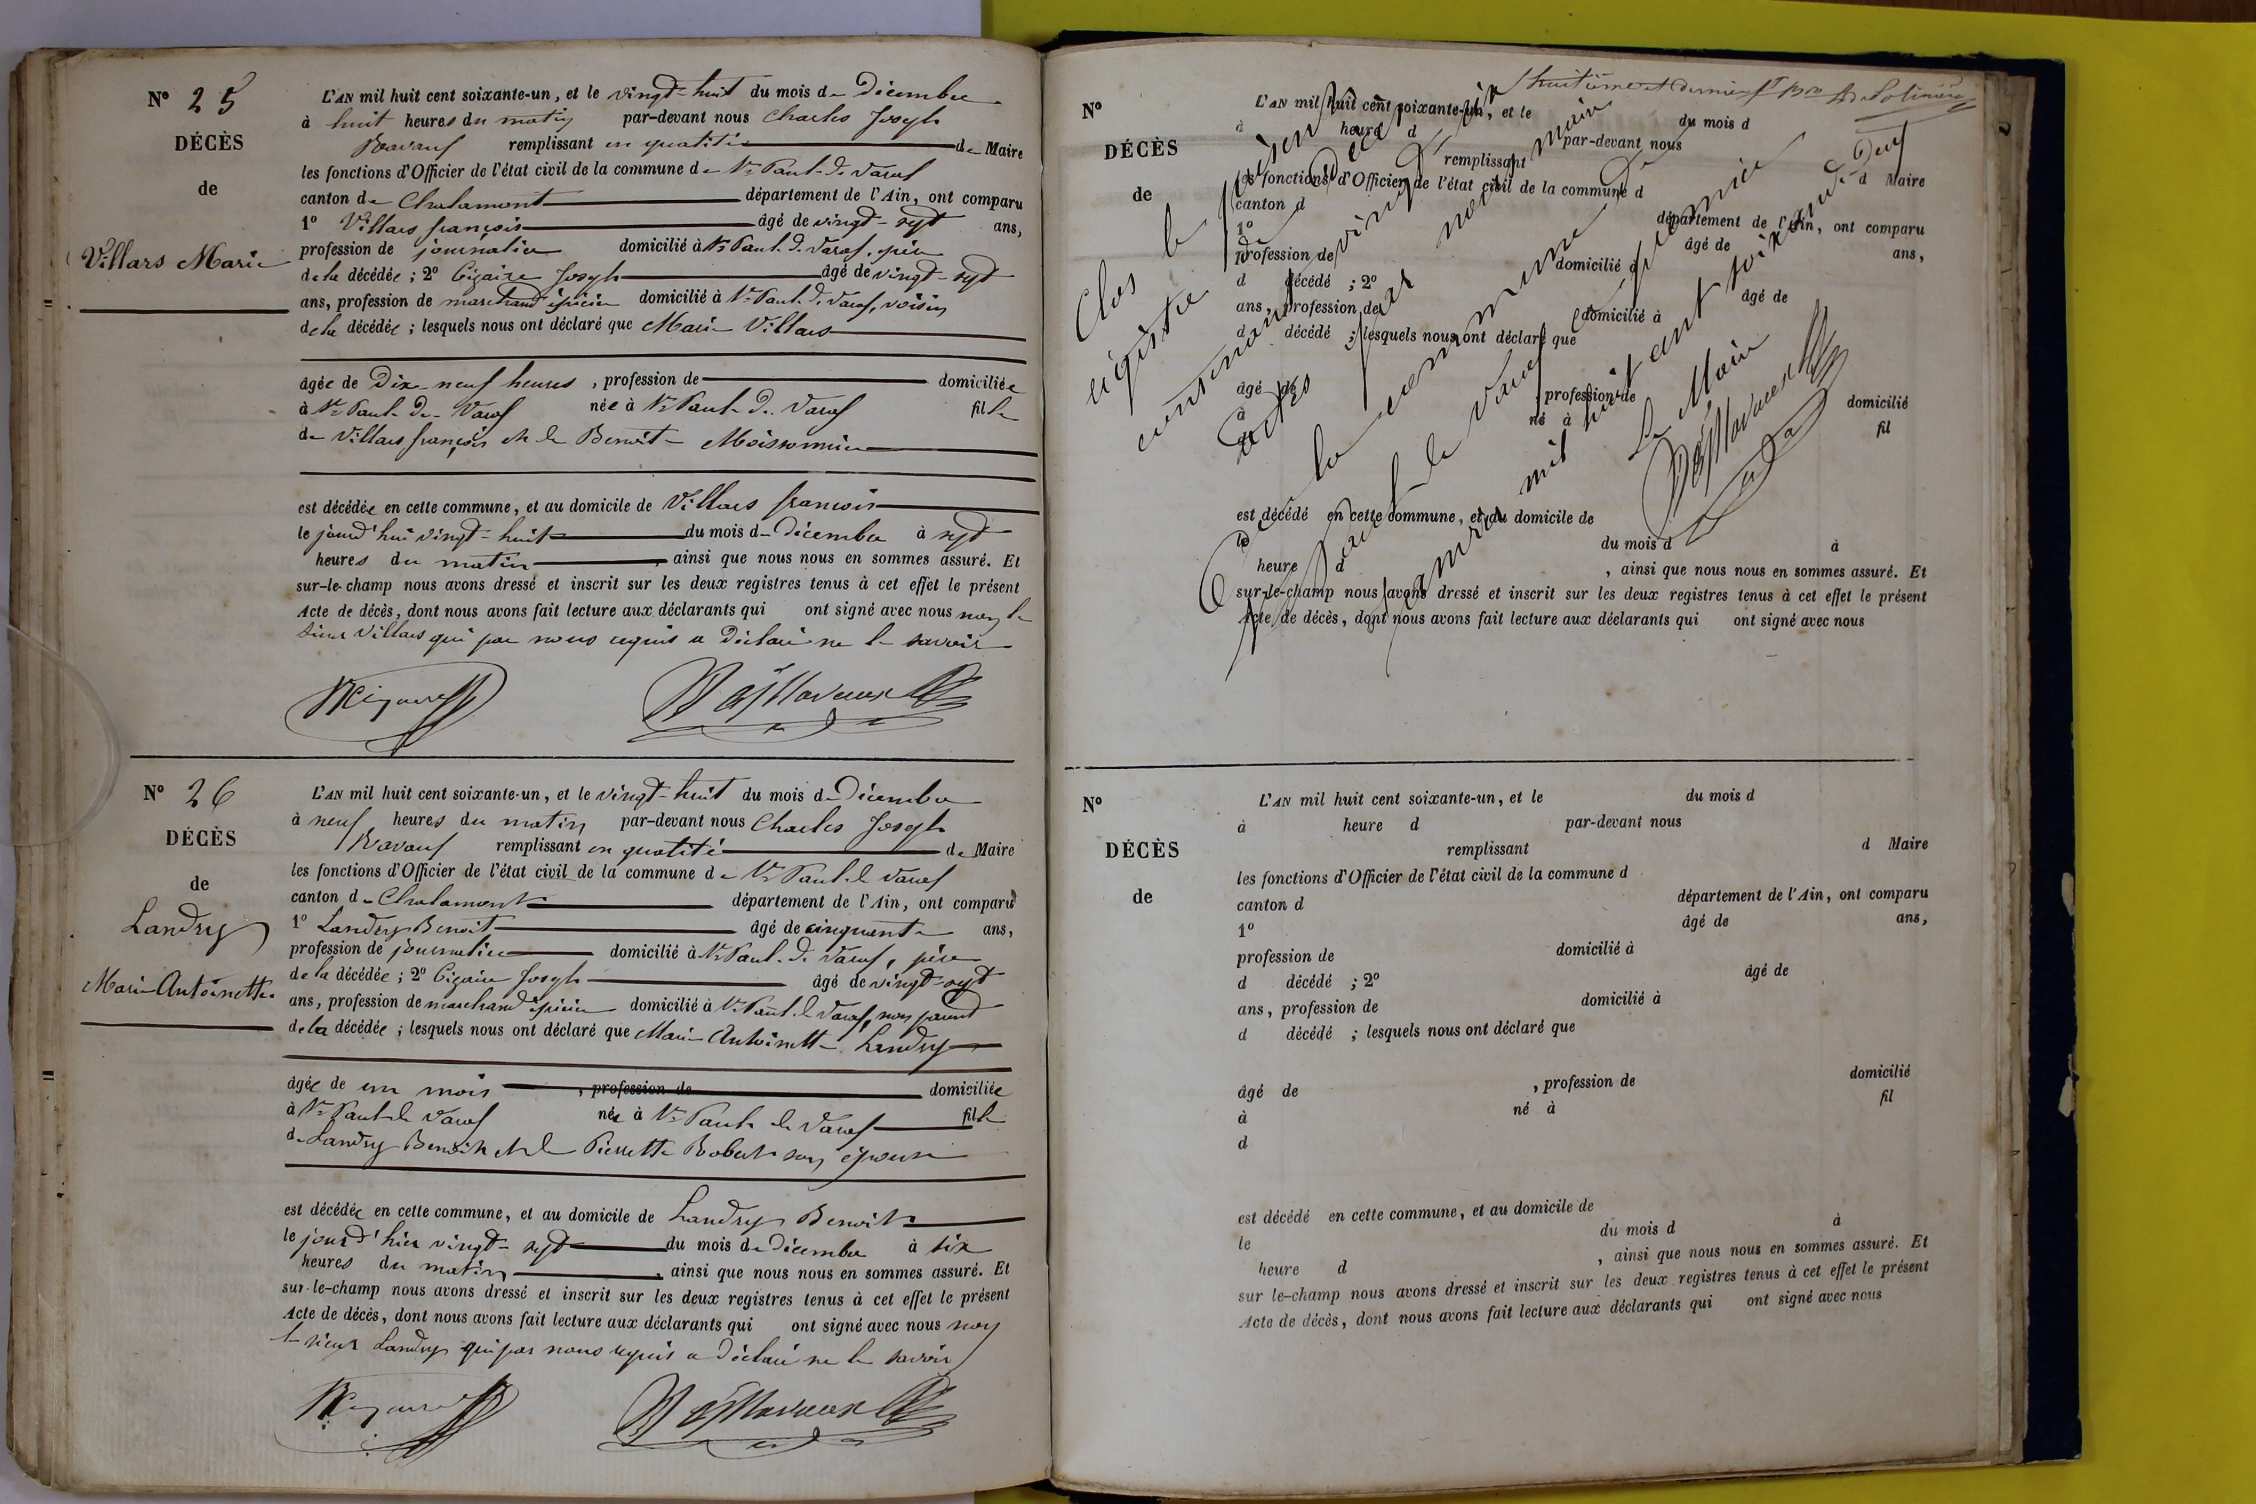 N° 25
DÉCÈS
de
Villars Marie
L'AN mil huit cent soixante-un, et le vingt-huit du mois de Décembre
à huit heures du matin par-devant nous Charles Joseph
remplissant en qualité de Maire
les fonctions d'Officier de l'état civil de la commune de St Paul de Varax
canton de Chalamont département de l'Ain, ont comparu
1° Villars françois âgé de vingt-sept ans,
profession de journalier domicilié à St Paul de Varax, père
de la décédée ; 2° Joseph âgé de vingt-sept
ans, profession de marchand épicier domicilié à St Paul de Varax, voisin
de la décédée ; lesquels nous ont déclaré que Marie Villars
âgée de Dix neuf heures , profession de domiciliée
à St Paul de Varax née à St Paul de Varax fille
de Villars françois et de Benoite Moissonnier
est décédée en cette commune, et au domicile de Villars françois
le jourd'hui vingt-huit du mois de Décembre à sept
heures du matin , ainsi que nous nous en sommes assuré. Et
sur-le-champ nous avons dressé et inscrit sur les deux registres tenus à cet effet le présent
Acte de décès, dont nous avons fait lecture aux déclarants qui ont signé avec nous non le
sieur Villars qui par nous requis a Déclaré ne le savoir
N° 26
DÉCÈS
de
Landry
Marie Antoinette
L'AN mil huit cent soixante-un, et le vingt-huit du mois de Décembre
à neuf heures du matin par-devant nous Charles Joseph
remplissant en qualité de Maire
les fonctions d'Officier de l'état civil de la commune de St Paul de Varax
canton de Chalamont département de l'Ain, ont comparu
1° Landry Benoit âgé de cinquante ans,
profession de journalier domicilié à St Paul de Varax, père
de la décédée ; 2° Joseph âgé de vingt-sept
ans, profession de marchand épicier domicilié à St Paul de Varax, non parent
de la décédée ; lesquels nous ont déclaré que Marie Antoinette Landry
âgée de un mois , profession de domiciliée
à St Paul de Varax née à St Paul de Varax fille
de Landry Benoit et de Pierrette Robert son épouse
est décédée en cette commune, et au domicile de Landry Benoit
le jour d'hier vingt-sept du mois de Décembre à six
heures du matin , ainsi que nous nous en sommes assuré. Et
sur-le-champ nous avons dressé et inscrit sur les deux registres tenus à cet effet le présent
Acte de décès, dont nous avons fait lecture aux déclarants qui ont signé avec nous non
le sieur Landry qui par nous requis a Déclaré ne le savoir
huitième et dernier
N°
DÉCÈS
de
L'AN mil huit cent soixante-un, et le du mois d
à heure d par-devant nous
remplissant d Maire
les fonctions d'Officier de l'état civil de la commune d
canton d département de l'Ain, ont comparu
1° âgé de ans,
profession de domicilié à
d décédé ; 2° âgé de
ans, profession de domicilié à
d décédé ; lesquels nous ont déclaré que
âgé de , profession de domicilié
à né à fil
d
est décédé en cette commune, et au domicile de
le du mois d à
heure d , ainsi que nous nous en sommes assuré. Et
sur-le-champ nous avons dressé et inscrit sur les deux registres tenus à cet effet le présent
Acte de décès, dont nous avons fait lecture aux déclarants qui ont signé avec nous
Clos le présent
registre de Décès
contenant vingt six
actes par nous maire
De la commune De
St Paul de Varax ce premier
janvier mil huit cent soixante Deux
Le Maire
N°
DÉCÈS
de
L'AN mil huit cent soixante-un, et le du mois d
à heure d par-devant nous
remplissant d Maire
les fonctions d'Officier de l'état civil de la commune d
canton d département de l'Ain, ont comparu
1° âgé de ans,
profession de domicilié à
d décédé ; 2° âgé de
ans, profession de domicilié à
d décédé ; lesquels nous ont déclaré que
âgé de , profession de domicilié
à né à fil
d
est décédé en cette commune, et au domicile de
le du mois d à
heure d , ainsi que nous nous en sommes assuré. Et
sur le-champ nous avons dressé et inscrit sur les deux registres tenus à cet effet le présent
Acte de décès, dont nous avons fait lecture aux déclarants qui ont signé avec nous